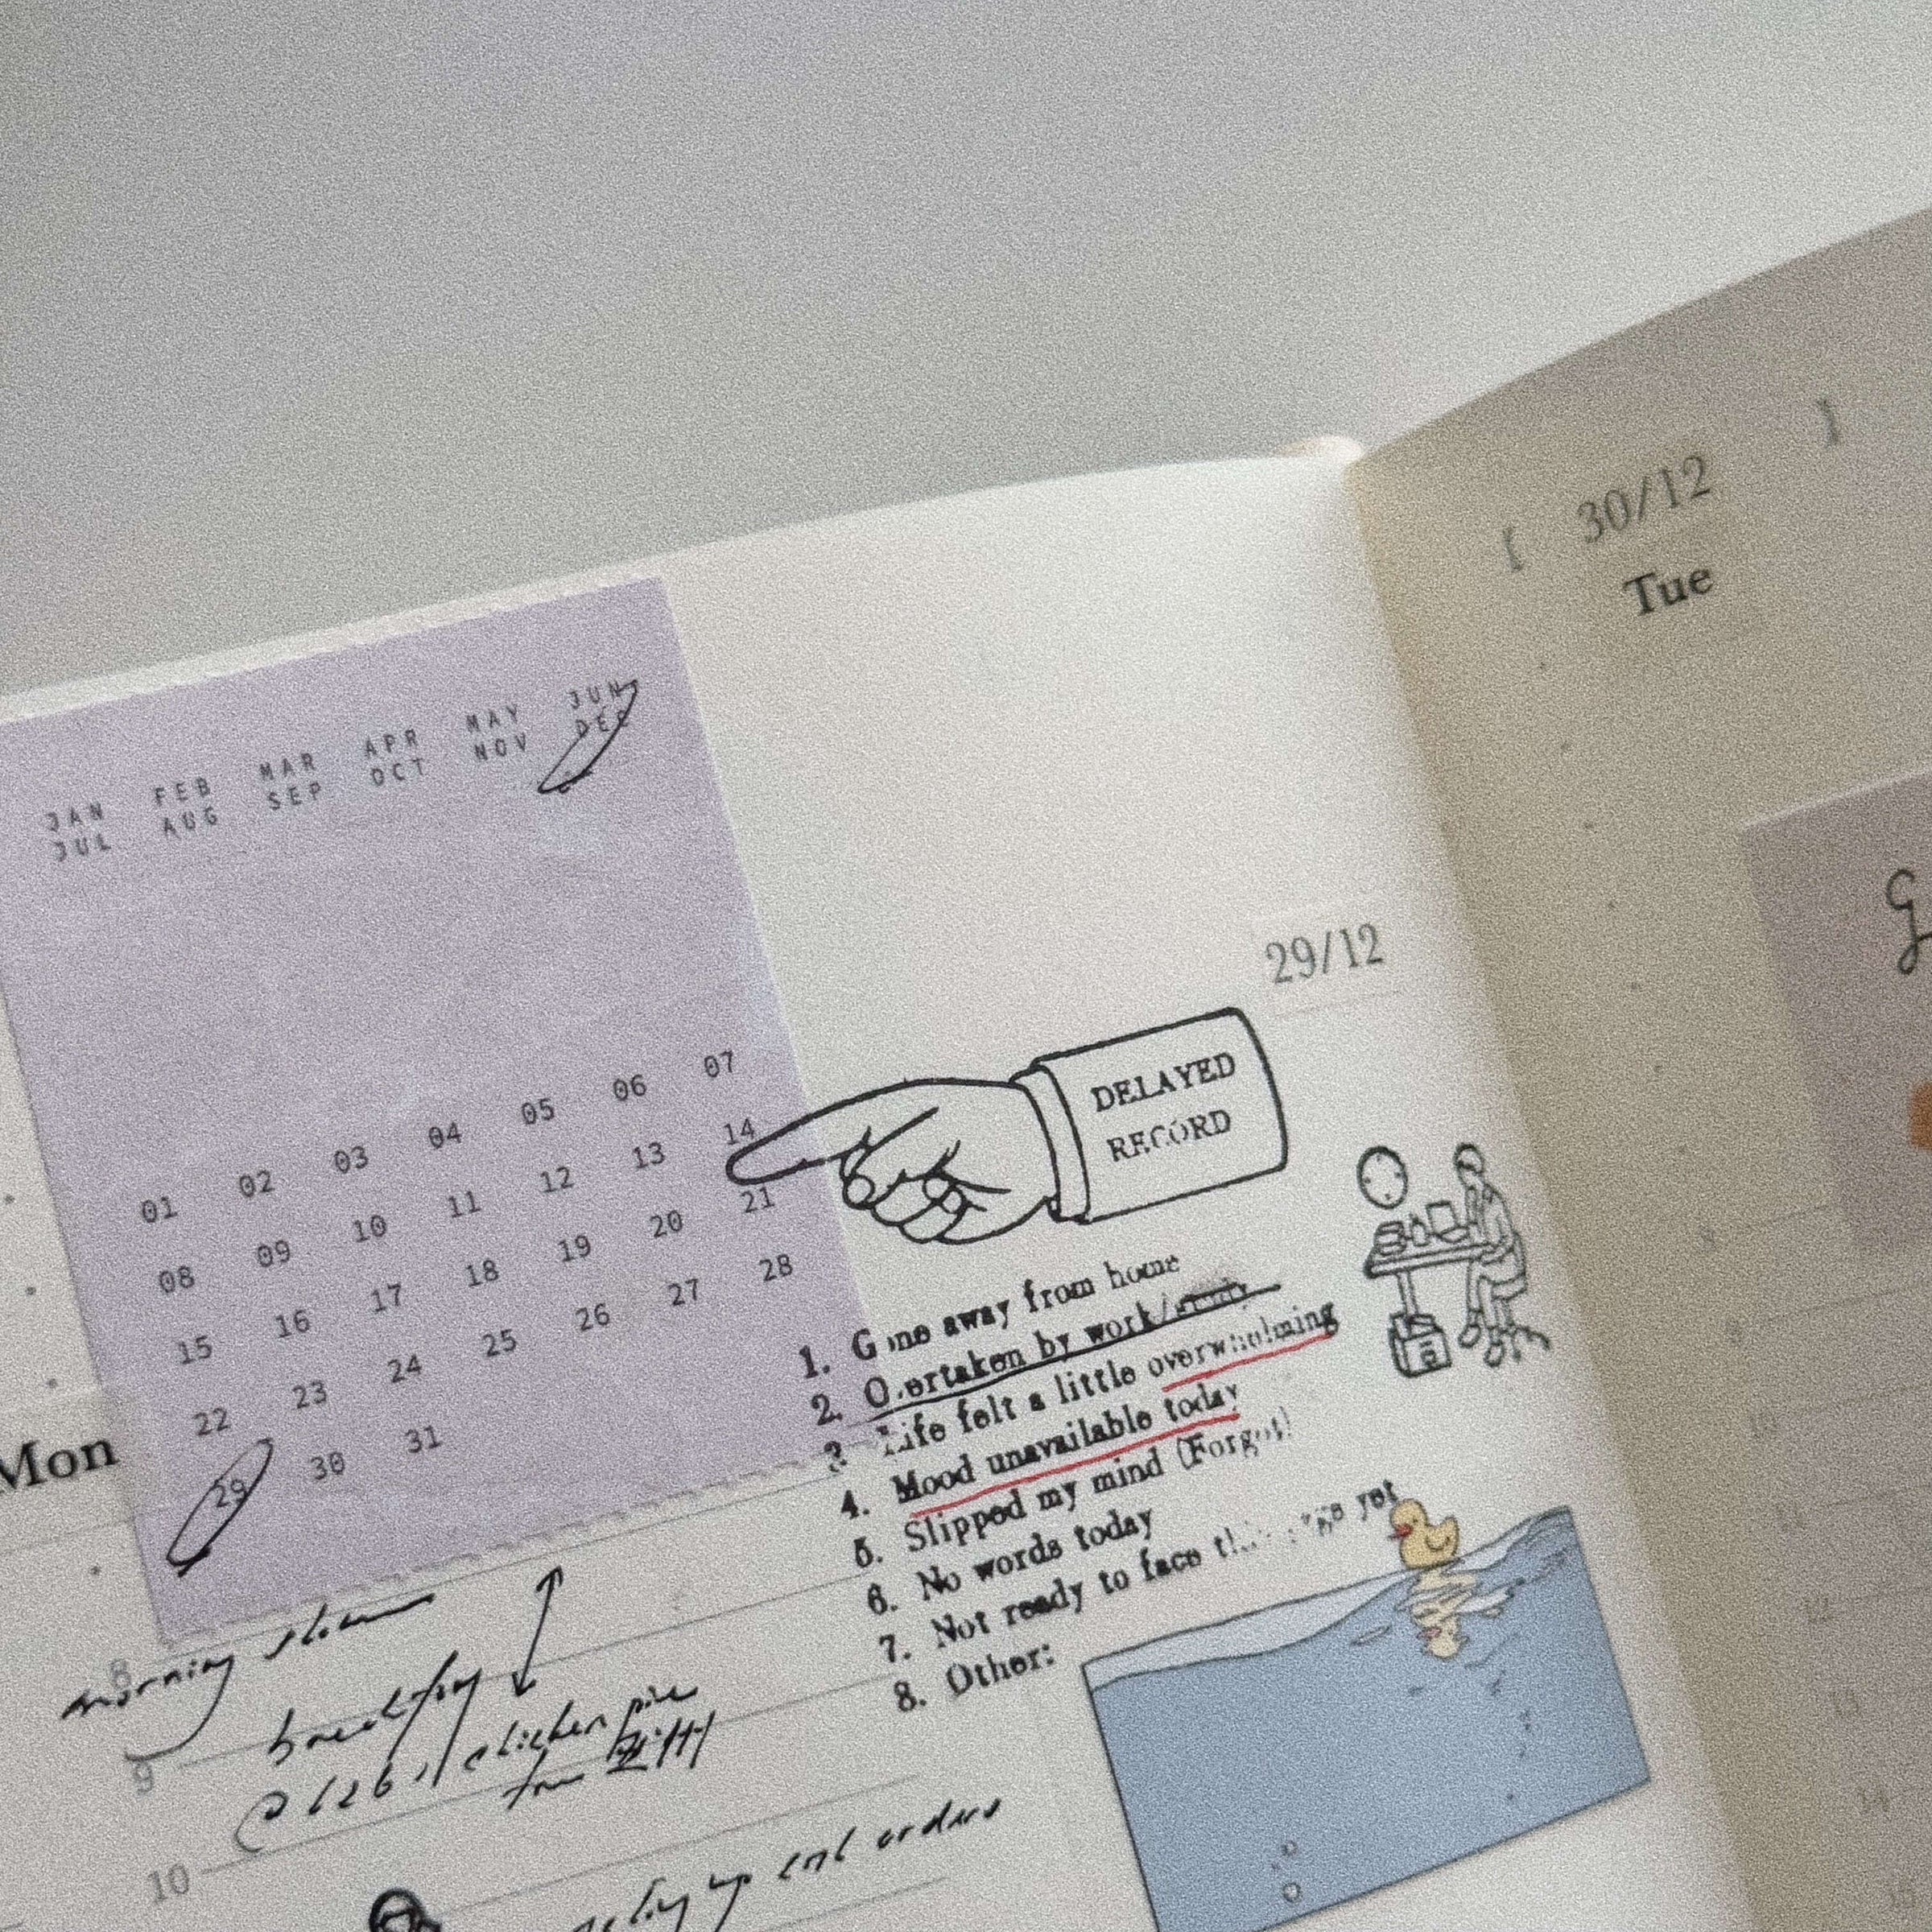 JAN FEB MAR APR MAY JUN
JUL AUG SEP OCT NOV DEC
01 02 03 04 05 06 07
08 09 10 11 12 13 14
15 16 17 18 19 20 21
22 23 24 25 26 27 28
29 30 31
Mon
29/12
DELAYED
RECORD
1. Gone away from home
2. Overtaken by work/
3. Life felt a little overwhelming
4. Mood unavailable today
5. Slipped my mind (Forgot)
6. No words today
7. Not ready to face yet
8. Other:
8
morning
9
@ chicken
from
10
up orders
{ 30/12 }
Tue
8
12
13
14